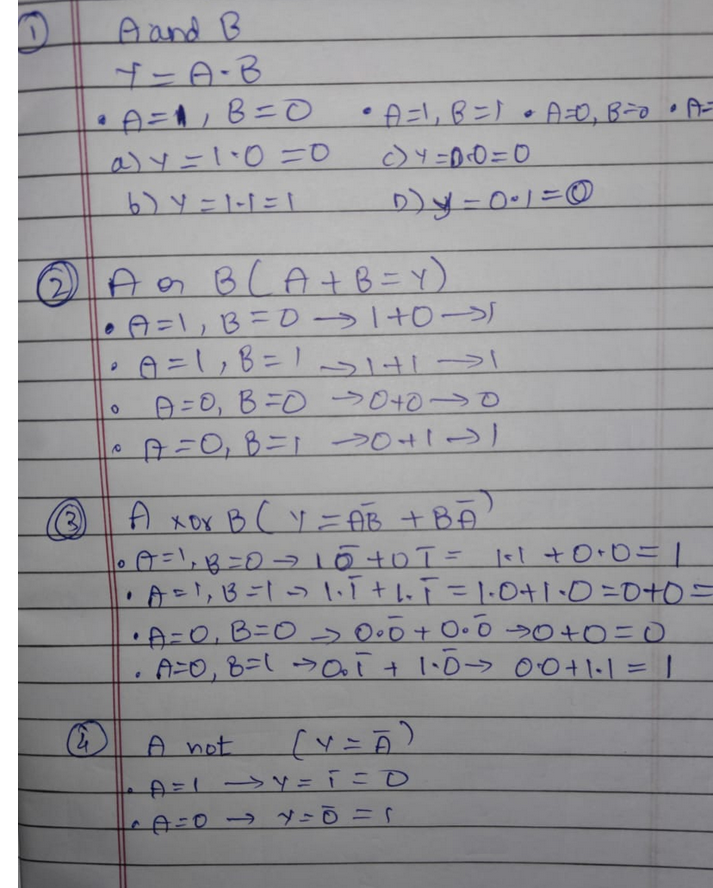 ① A and B
Y = A·B
• A=1, B=0 • A=1, B=1 • A=0, B=0 • A=
a) Y = 1·0 = 0 c) Y = 0·0 = 0
b) Y = 1·1 = 1 D) y = 0·1 = 0
② A or B ( A + B = Y )
• A=1, B=0 → 1+0 → 1
• A=1, B=1 → 1+1 → 1
• A=0, B=0 → 0+0 → 0
• A=0, B=1 → 0+1 → 1
③ A xor B ( Y = AB̅ + BA̅ )
• A=1, B=0 → 1 0̅ + 0 1̅ = 1·1 + 0·0 = 1
• A=1, B=1 → 1·1̅ + 1·1̅ = 1·0+1·0 = 0+0 =
• A=0, B=0 → 0·0̅ + 0·0̅ → 0+0 = 0
• A=0, B=1 → 0·1̅ + 1·0̅ → 0·0+1·1 = 1
④ A not ( Y = A̅ )
• A=1 → Y = 1̅ = 0
• A=0 → Y = 0̅ = 1